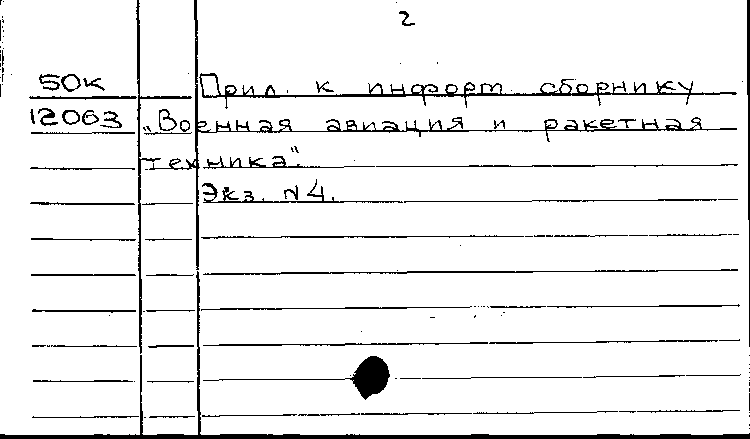 2
50к Прил. к информ сборнику
12063 „Военная авиация и ракетная
техника".
Экз. N4.